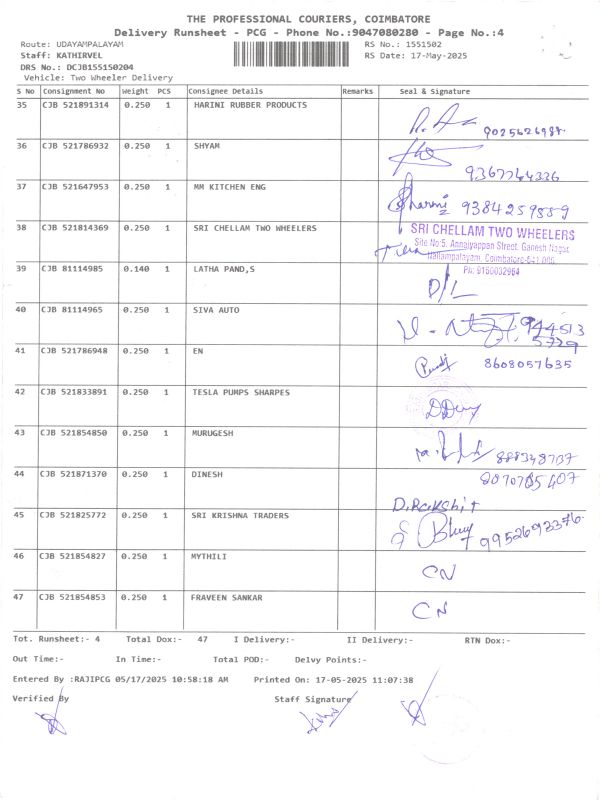 THE PROFESSIONAL COURIERS, COIMBATORE
Delivery Runsheet - PCG - Phone No.:9047080280 - Page No.:4
Route: UDAYAMPALAYAM RS No.: 1551502
Staff: KATHIRVEL RS Date: 17-May-2025
DRS No.: DCJB155150204
Vehicle: Two Wheeler Delivery
S No Consignment No Weight PCS Consignee Details Remarks Seal & Signature
35 CJB 521891314 0.250 1 HARINI RUBBER PRODUCTS
9025626987
36 CJB 521786932 0.250 1 SHYAM
9367764336
37 CJB 521647953 0.250 1 MM KITCHEN ENG
9384259889
38 CJB 521814369 0.250 1 SRI CHELLAM TWO WHEELERS
SRI CHELLAM TWO WHEELERS
Site No:5, Annaiyappan Street, Ganesh Nagar
Nallampalayam, Coimbatore-641 006.
Ph: 9150032964
39 CJB 81114985 0.140 1 LATHA PAND,S
D/L
40 CJB 81114965 0.250 1 SIVA AUTO
944513
5729
41 CJB 521786948 0.250 1 EN
8608057635
42 CJB 521833891 0.250 1 TESLA PUMPS SHARPES
43 CJB 521854850 0.250 1 MURUGESH
44 CJB 521871370 0.250 1 DINESH
D.Rakshit
45 CJB 521825772 0.250 1 SRI KRISHNA TRADERS
9952692376
46 CJB 521854827 0.250 1 MYTHILI
CN
47 CJB 521854853 0.250 1 FRAVEEN SANKAR
CN
Tot. Runsheet:- 4 Total Dox:- 47 I Delivery:- II Delivery:- RTN Dox:-
Out Time:- In Time:- Total POD:- Delvy Points:-
Entered By :RAJIPCG 05/17/2025 10:58:18 AM Printed On: 17-05-2025 11:07:38
Verified By Staff Signature